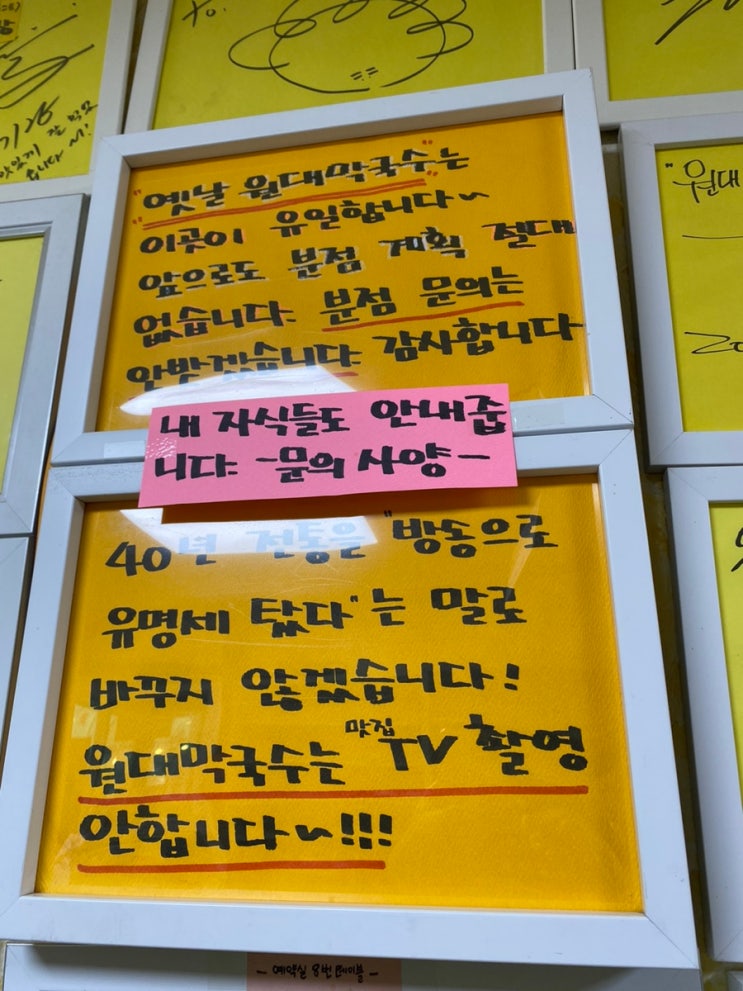 To.
"옛날 원대막국수"는
이곳이 유일합니다~
앞으로도 분점 계획 절대
없습니다. 분점 문의는
안받겠습니다. 감사합니다
내 자식들도 안내줍
니다. -문의 사양-
40년 전통을 "방송으로
유명세 탔다"는 말로
바꾸지 않겠습니다!
맛집
원대막국수는 TV 촬영
안합니다~!!!
- 예약실 8번 테이블 -
"원대